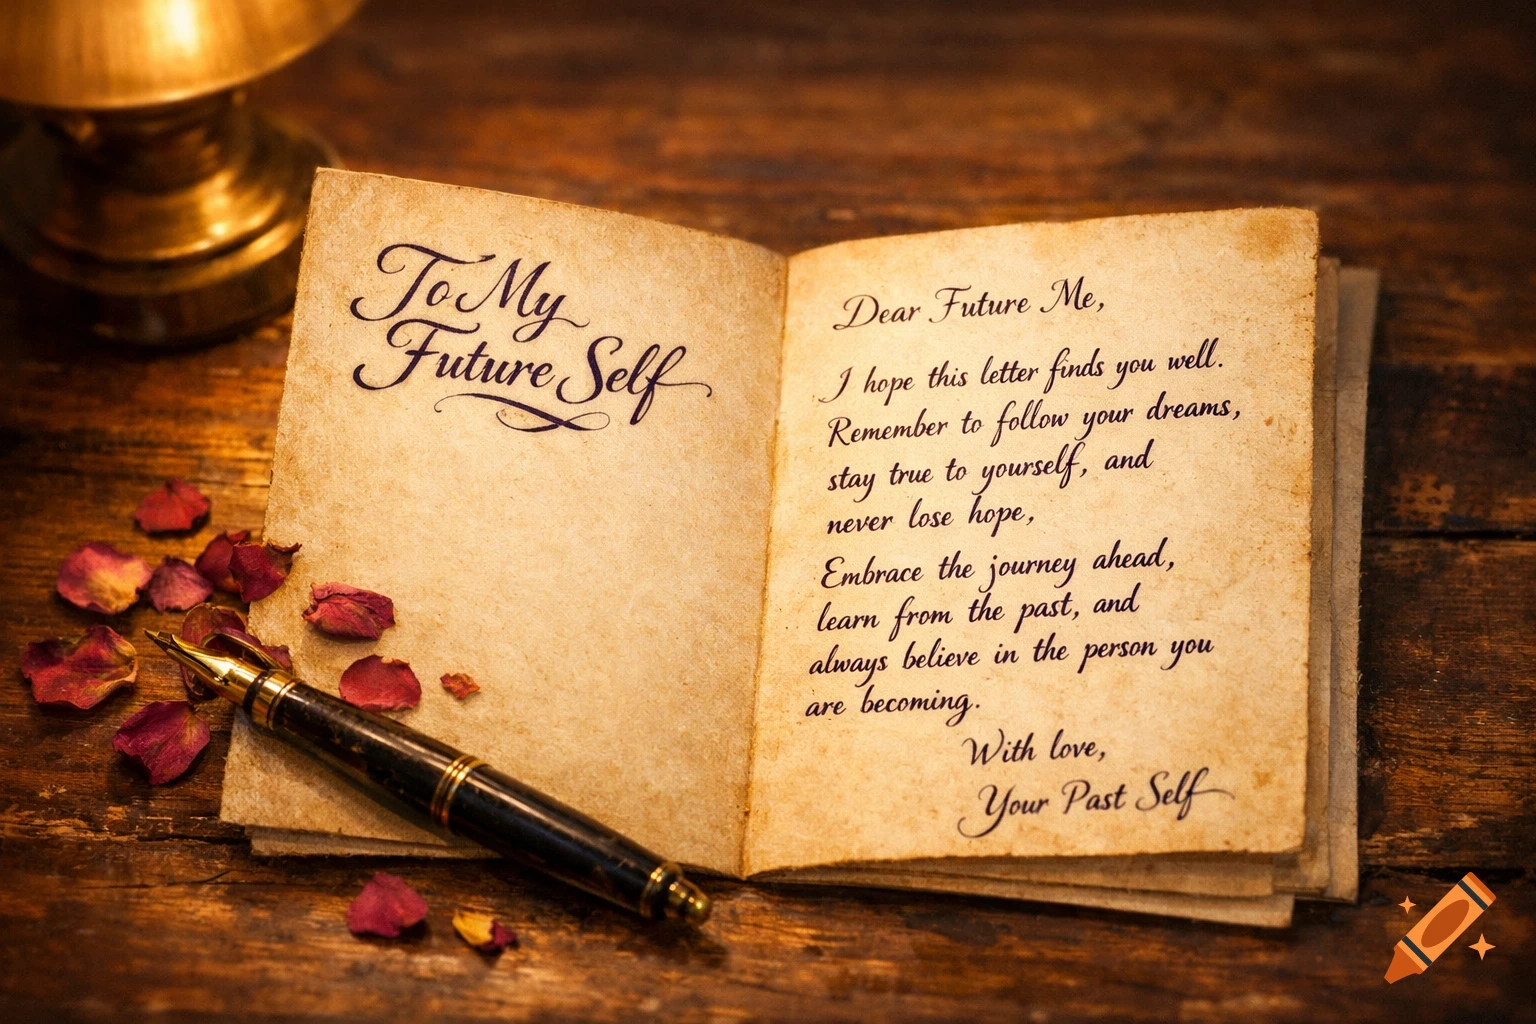 To My
Future Self
Dear Future Me,
I hope this letter finds you well.
Remember to follow your dreams,
stay true to yourself, and
never lose hope,
Embrace the journey ahead,
learn from the past, and
always believe in the person you
are becoming.
With love,
Your Past Self